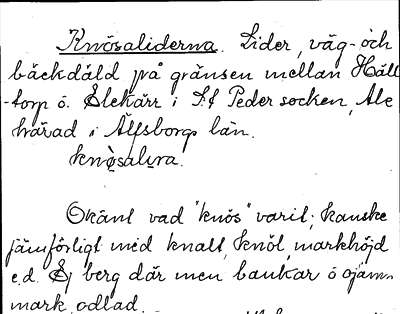 Knösaliderna. Lider, väg- och
bäckdäld på gränsen mellan Häll-
torp o. Slekärr i S:t Peder socken, Ale
härad i Älfsborgs län.
knösalira.
Okänt vad "knös" varit; kanske
jämförligt med knalt, knöl, markhöjd
e.d. Ej berg där men bankar o ojämn
mark, odlad.